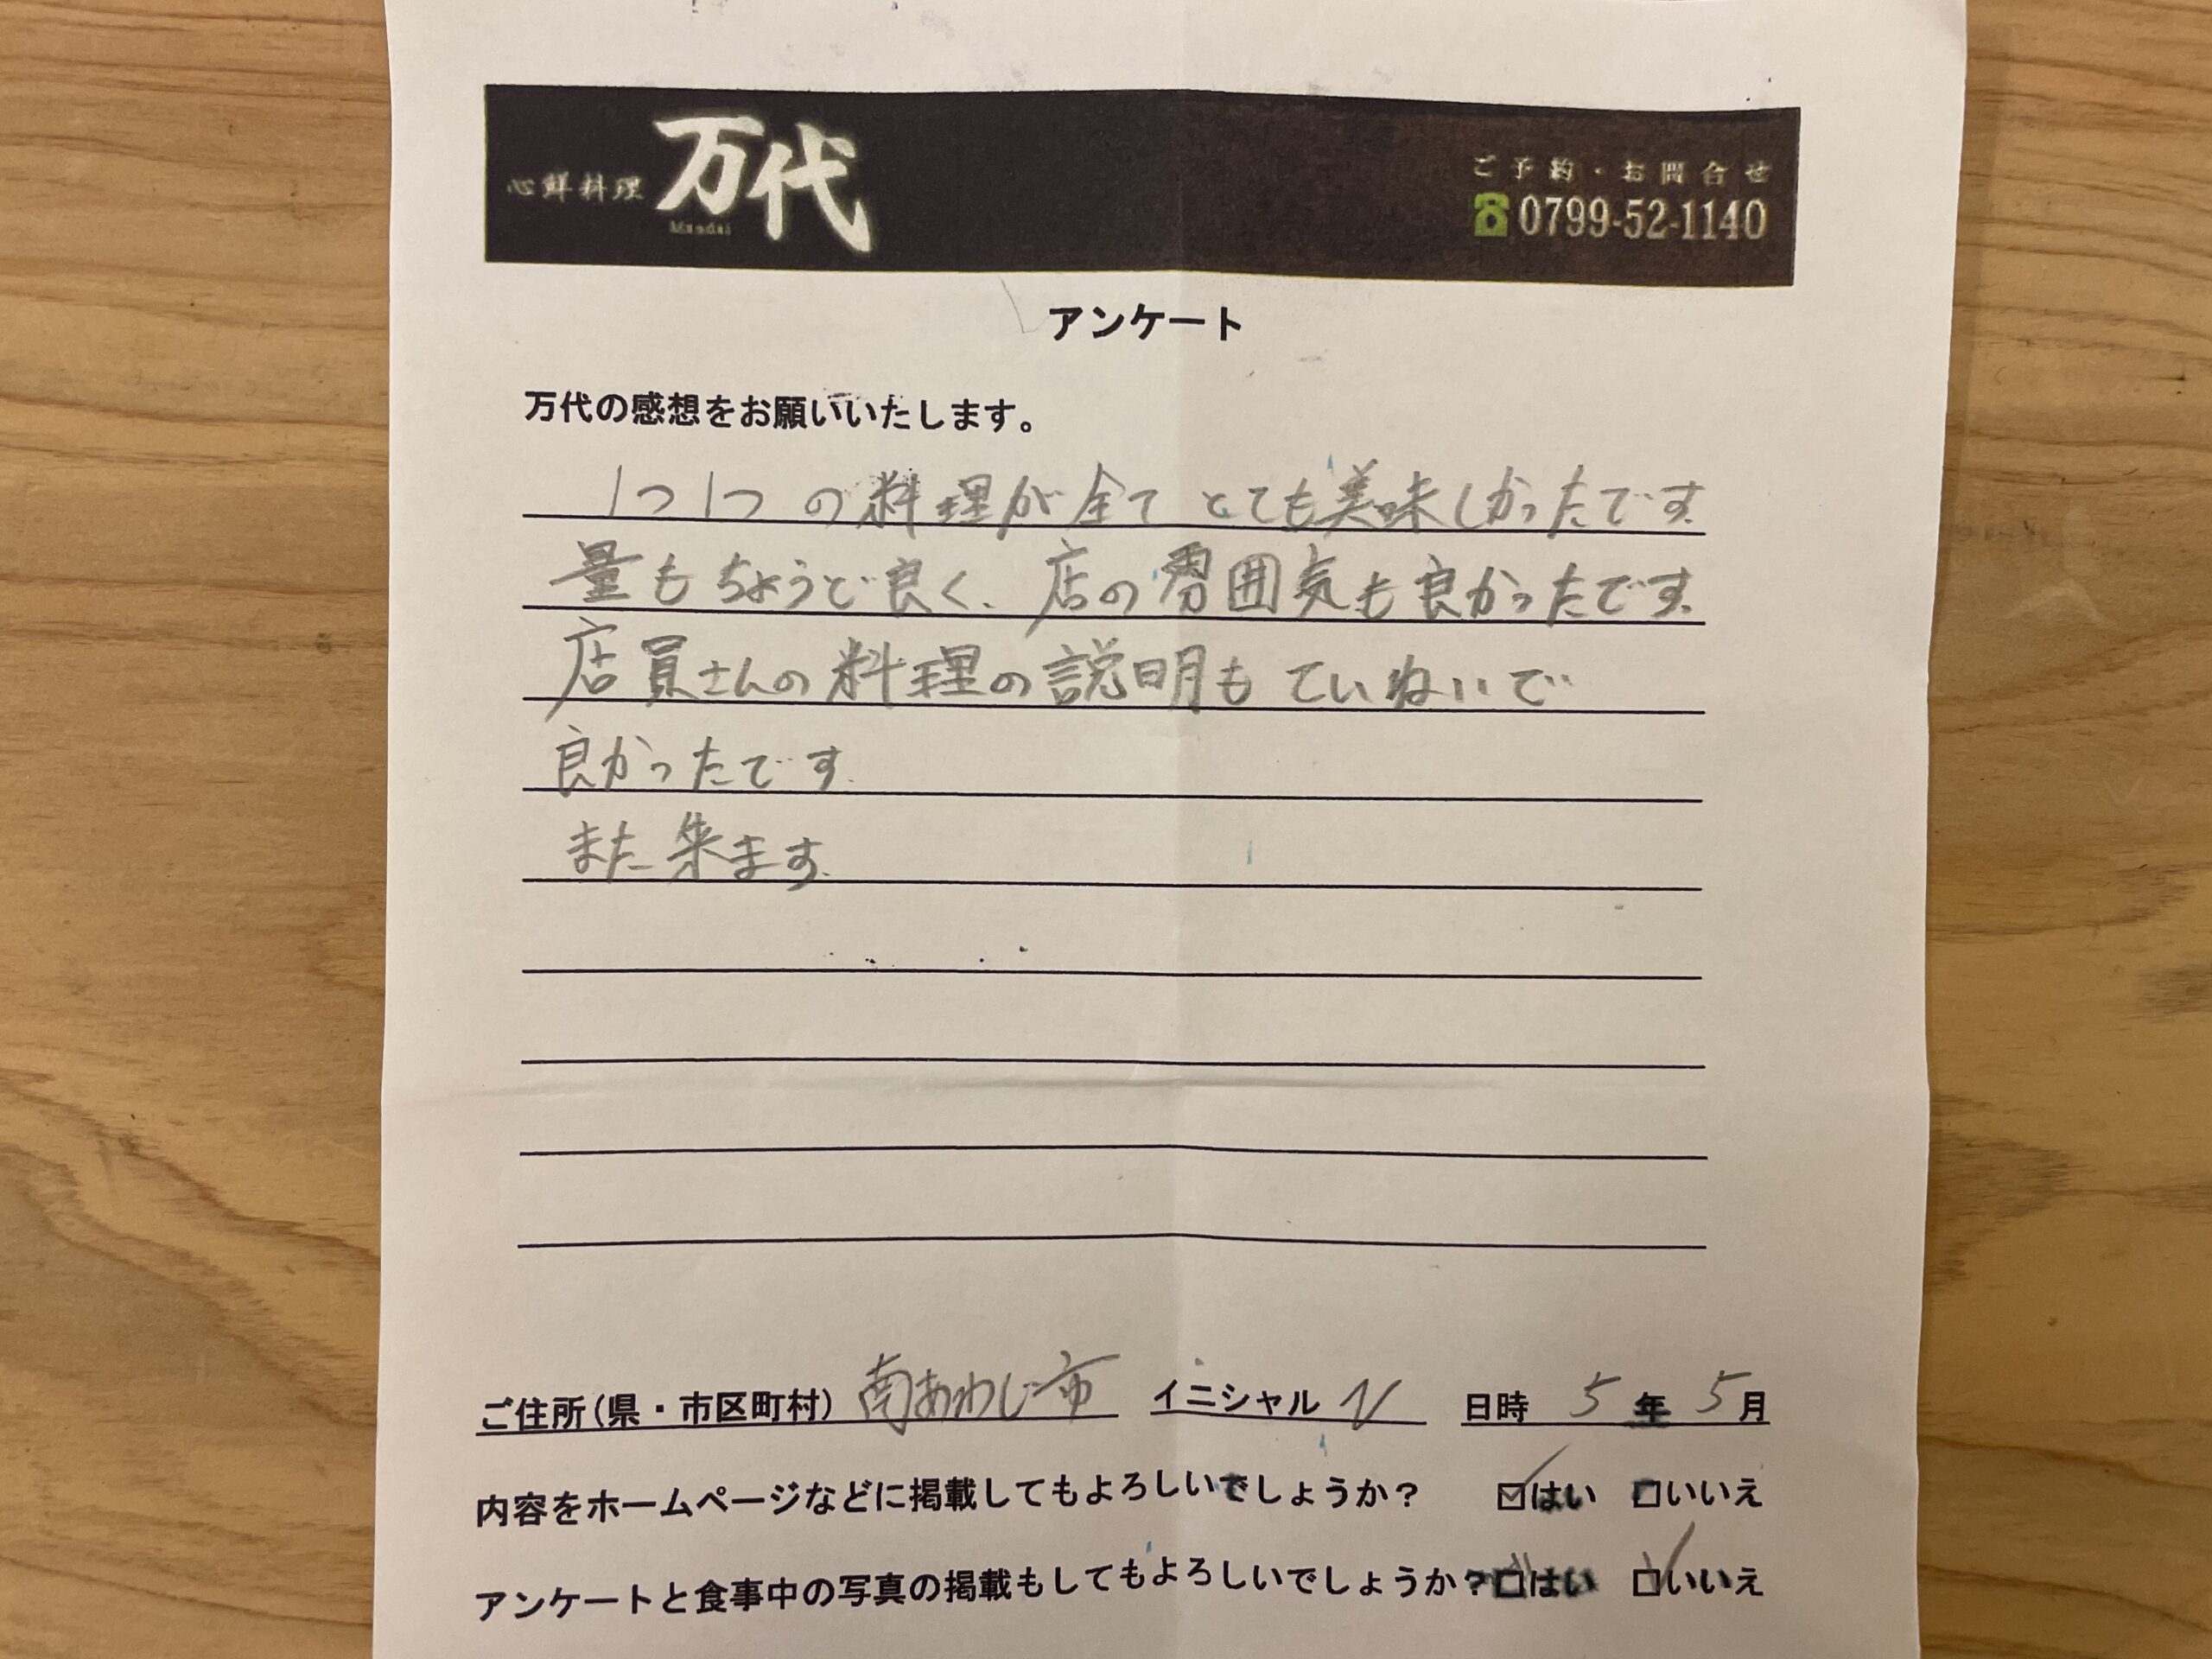 心鮮料理 万代
Mandai
ご予約・お問合せ
0799-52-1140
アンケート
万代の感想をお願いいたします。
1つ1つの料理が全てとても美味しかったです.
量もちょうど良く、店の雰囲気も良かったです.
店員さんの料理の説明もていねいで
良かったです.
また来ます.
ご住所(県・市区町村) 南あわじ市 イニシャル N 日時 5年 5月
内容をホームページなどに掲載してもよろしいでしょうか? ☑はい □いいえ
アンケートと食事中の写真の掲載もしてもよろしいでしょうか?□はい ☑いいえ